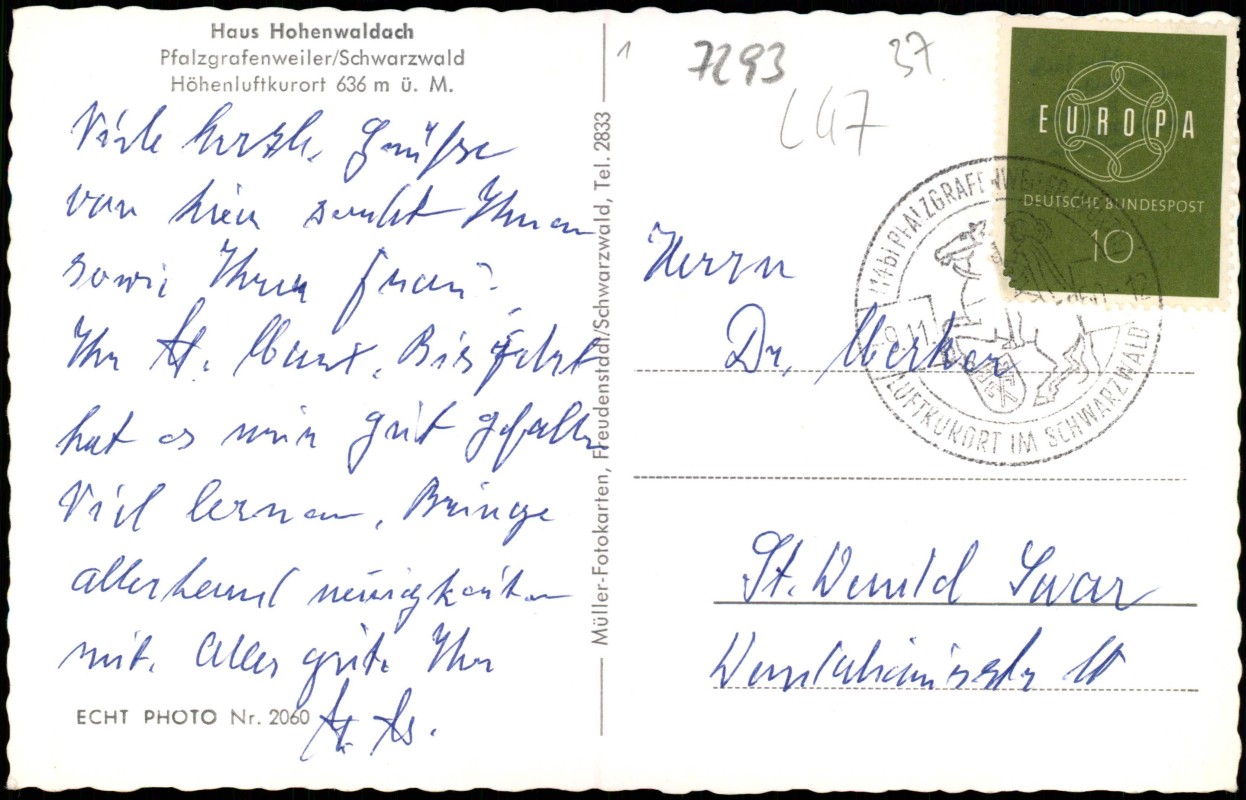 Haus Hohenwaldach
Pfalzgrafenweiler/Schwarzwald
Höhenluftkurort 636 m ü. M.
Viele herzl. Grüße
von hier sendet Ihnen
sowie Ihrer Frau
Ihr Bis jetzt
hat es mir gut gefallen
Viel lernen, Bringe
allerhand neuigkeiten
mit. Alles gute Ihr
ECHT PHOTO Nr. 2060
Müller-Fotokarten, Freudenstadt/Schwarzwald, Tel. 2833
7293
37
L47
EUROPA
DEUTSCHE BUNDESPOST
10
PFALZGRAFENWEILER
LUFTKURORT IM SCHWARZWALD
Herrn
Dr. Merker
St. Wendel Saar